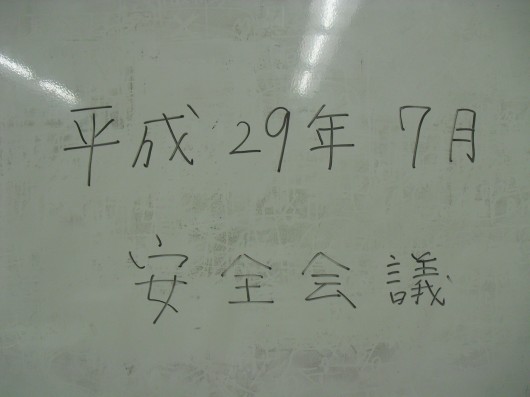 平成29年7月
安全会議